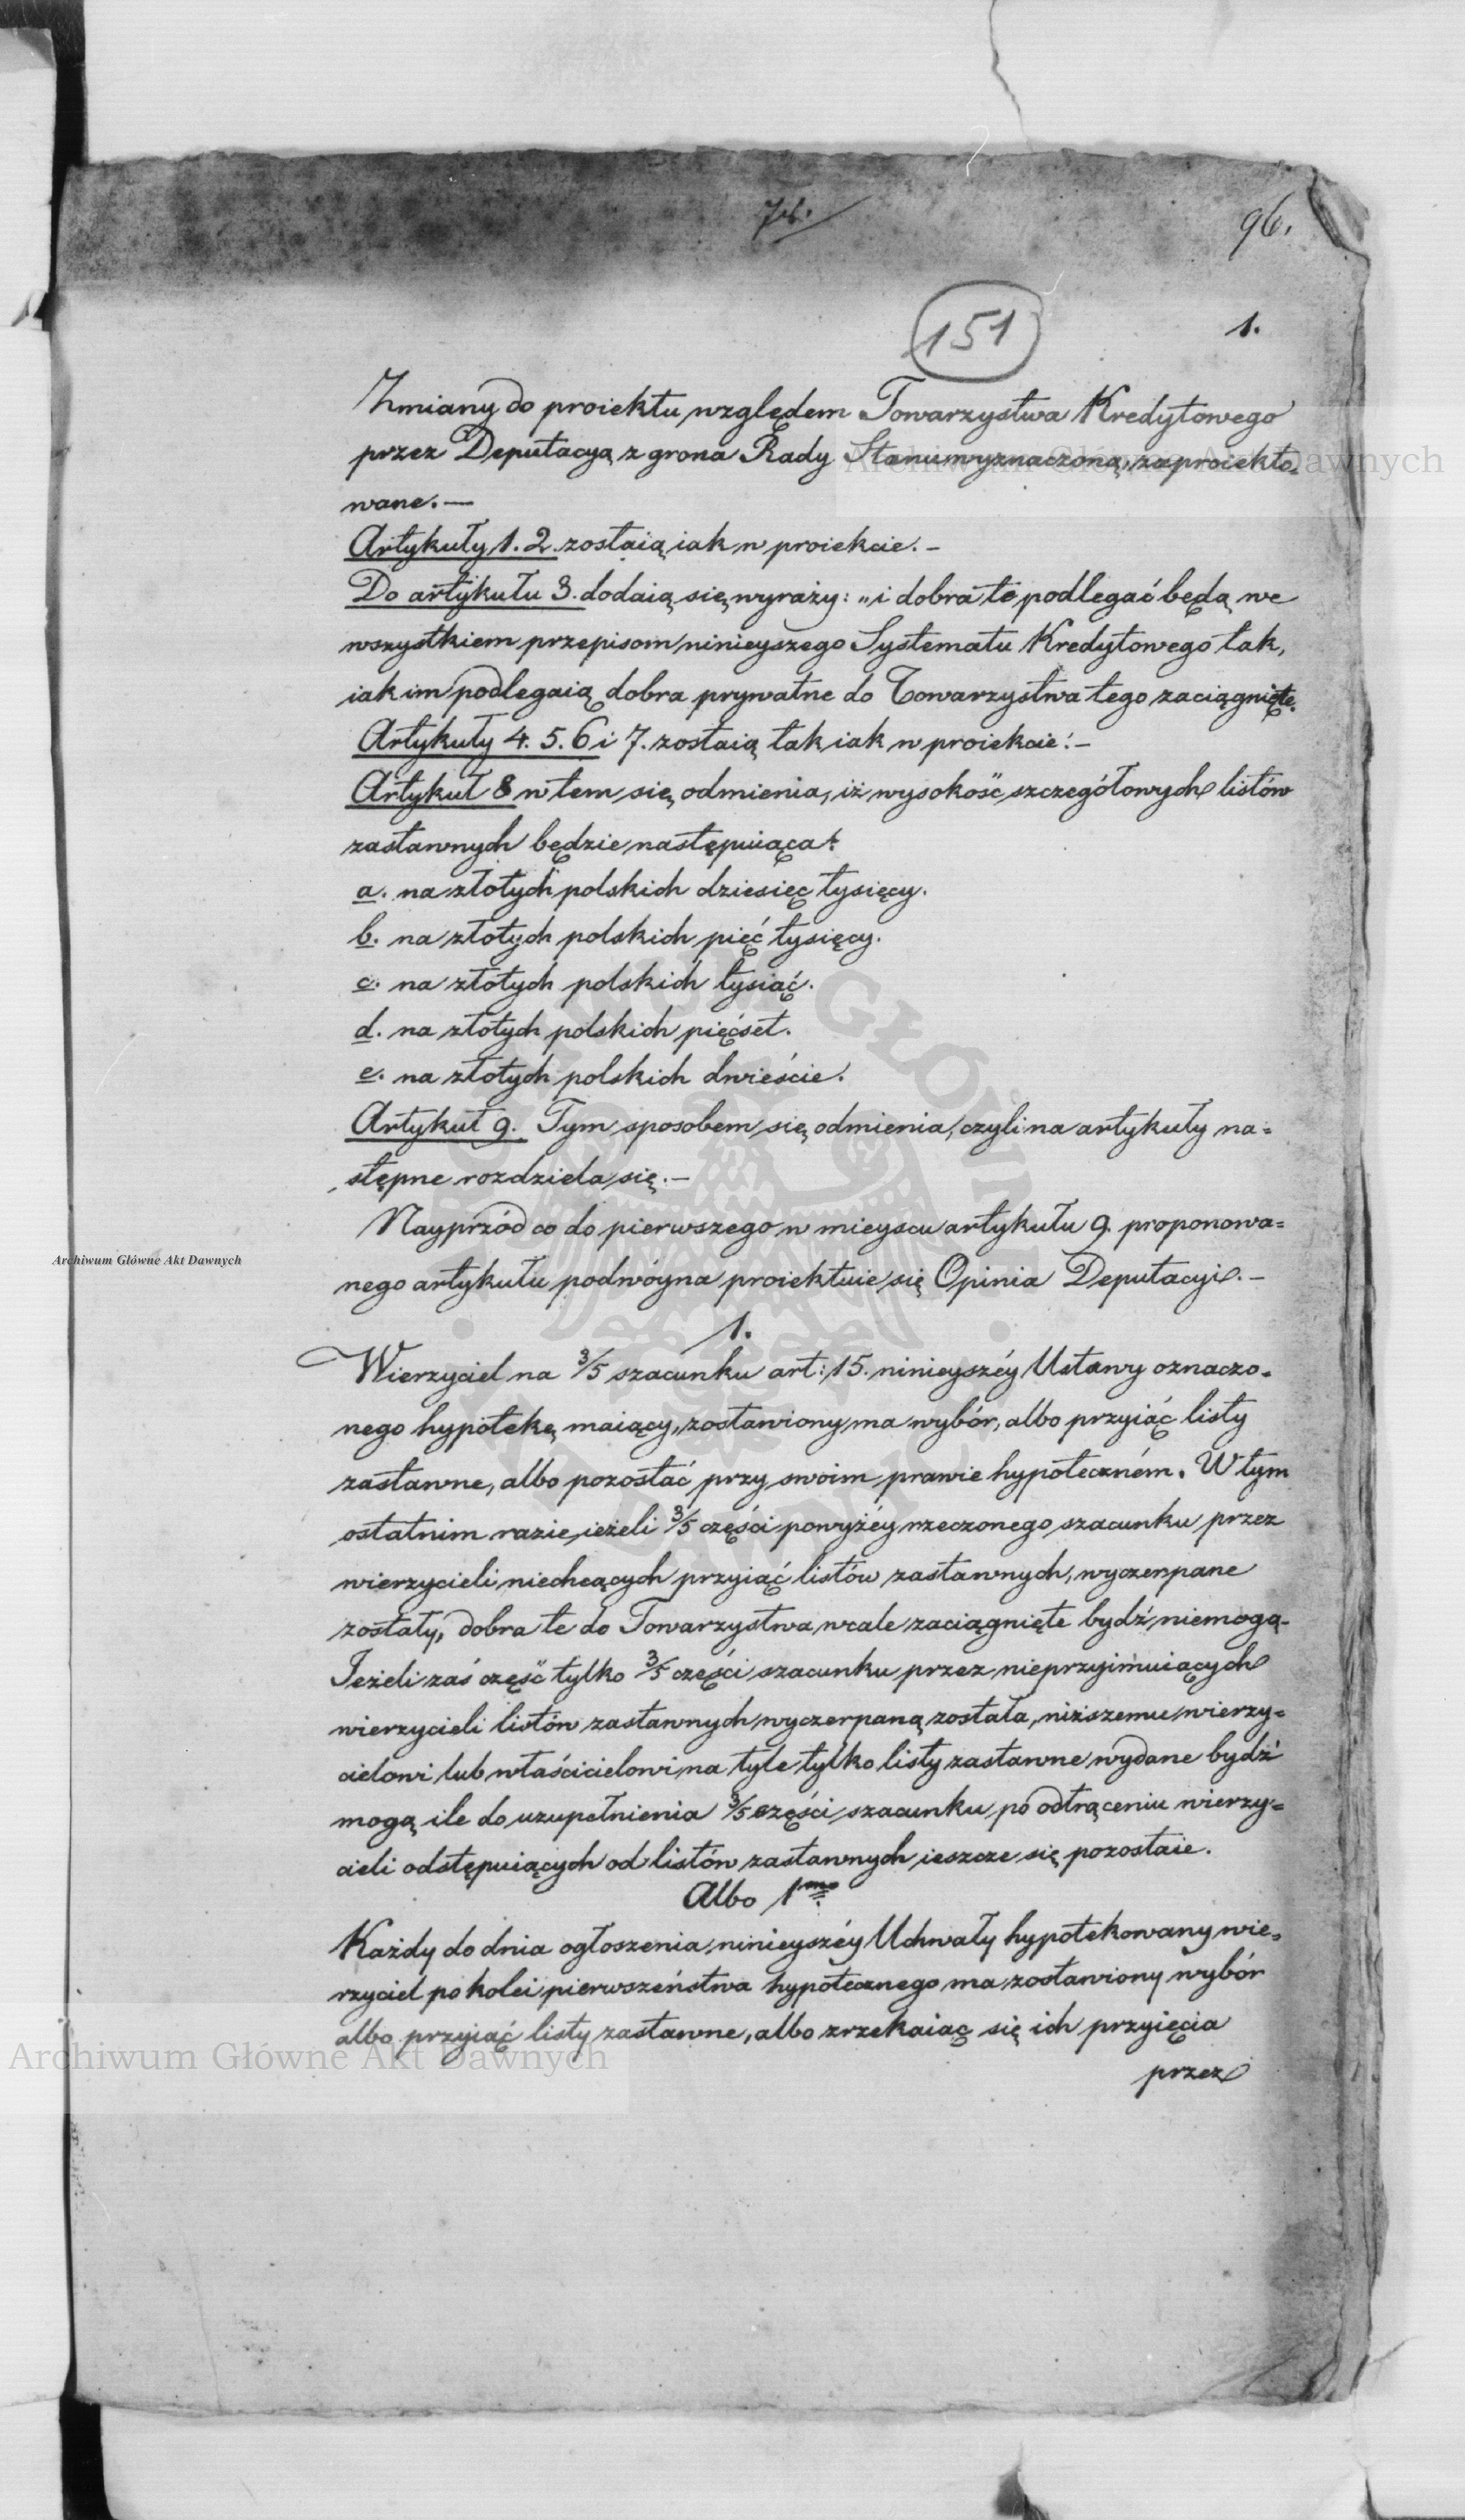 96.
151
1.
Zmiany do proiektu względem Towarzystwa Kredytowego
przez Deputacyą z grona Rady Stanu wyznaczoną, zaproiekto-
wane.—
Artykuły 1. 2. zostaią iak w proiekcie.—
Do artykułu 3. dodaią się wyrazy: „i dobra te podlegać będą we
wszystkiem przepisom ninieyszego Systematu Kredytowego tak,
iak im podlegaią dobra prywatne do Towarzystwa tego zaciągnięte.
Artykuły 4. 5. 6 i 7. zostaią tak iak w proiekcie.—
Artykuł 8 w tem się odmienia, iż wysokość szczegółowych listów
zastawnych będzie następuiąca:
a. na złotych polskich dziesięć tysięcy.
b. na złotych polskich pięć tysięcy.
c. na złotych polskich tysiąć.
d. na złotych polskich pięćset.
e. na złotych polskich dwieście.
Artykuł 9. Tym sposobem się odmienia, czyli na artykuły na=
stępne rozdziela się.—
Nayprzód co do pierwszego w mieyscu artykułu 9. proponowa=
nego artykułu podwóyna proiektuie się Opinia Deputacyi.—
1.
Wierzyciel na 3/5 szacunku art: 15. ninieyszéy Ustawy oznaczo-
nego hypotekę maiący, zostawiony ma wybór, albo przyiąć listy
zastawne, albo pozostać przy swoim prawie hypoteczném. W tym
ostatnim razie, ieżeli 3/5 części powyżéy rzeczonego szacunku przez
wierzycieli niechcących przyiąć listów zastawnych, wyczerpane
zostały, dobra te do Towarzystwa wcale zaciągnięte bydź niemogą.
Jeżeli zaś część tylko 3/5 części szacunku przez nieprzyimuiących
wierzycieli listów zastawnych wyczerpaną została, niższemu wierzy=
cielowi lub właścicielowi na tyle tylko listy zastawne wydane bydź
mogą ile do uzupełnienia 3/5 części szacunku po odtrąceniu wierzy=
cieli odstępuiących od listów zastawnych ieszcze się pozostaie.
Albo 1mo
Każdy do dnia ogłoszenia ninieyszéy Uchwały hypotekowany wie=
rzyciel po kolei pierwszeństwa hypotecznego ma zostawiony wybór
albo przyiąć listy zastawne, albo zrzekaiąc się ich przyięcia
przez
Archiwum Główne Akt Dawnych
Archiwum Główne Akt Dawnych
Archiwum Główne Akt Dawnych